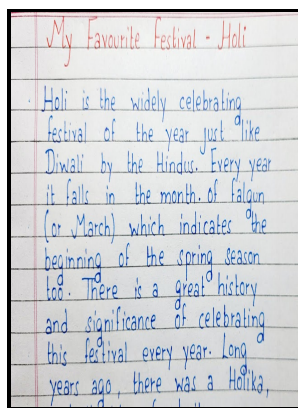 My Favourite Festival - Holi
Holi is the widely celebrating
festival of the year just like
Diwali by the Hindus. Every year
it falls in the month. of Falgun
(or March) which indicates the
beginning of the spring season
too. There is a great history
and significance of celebrating
this festival every year. Long
years ago, there was a Holika,